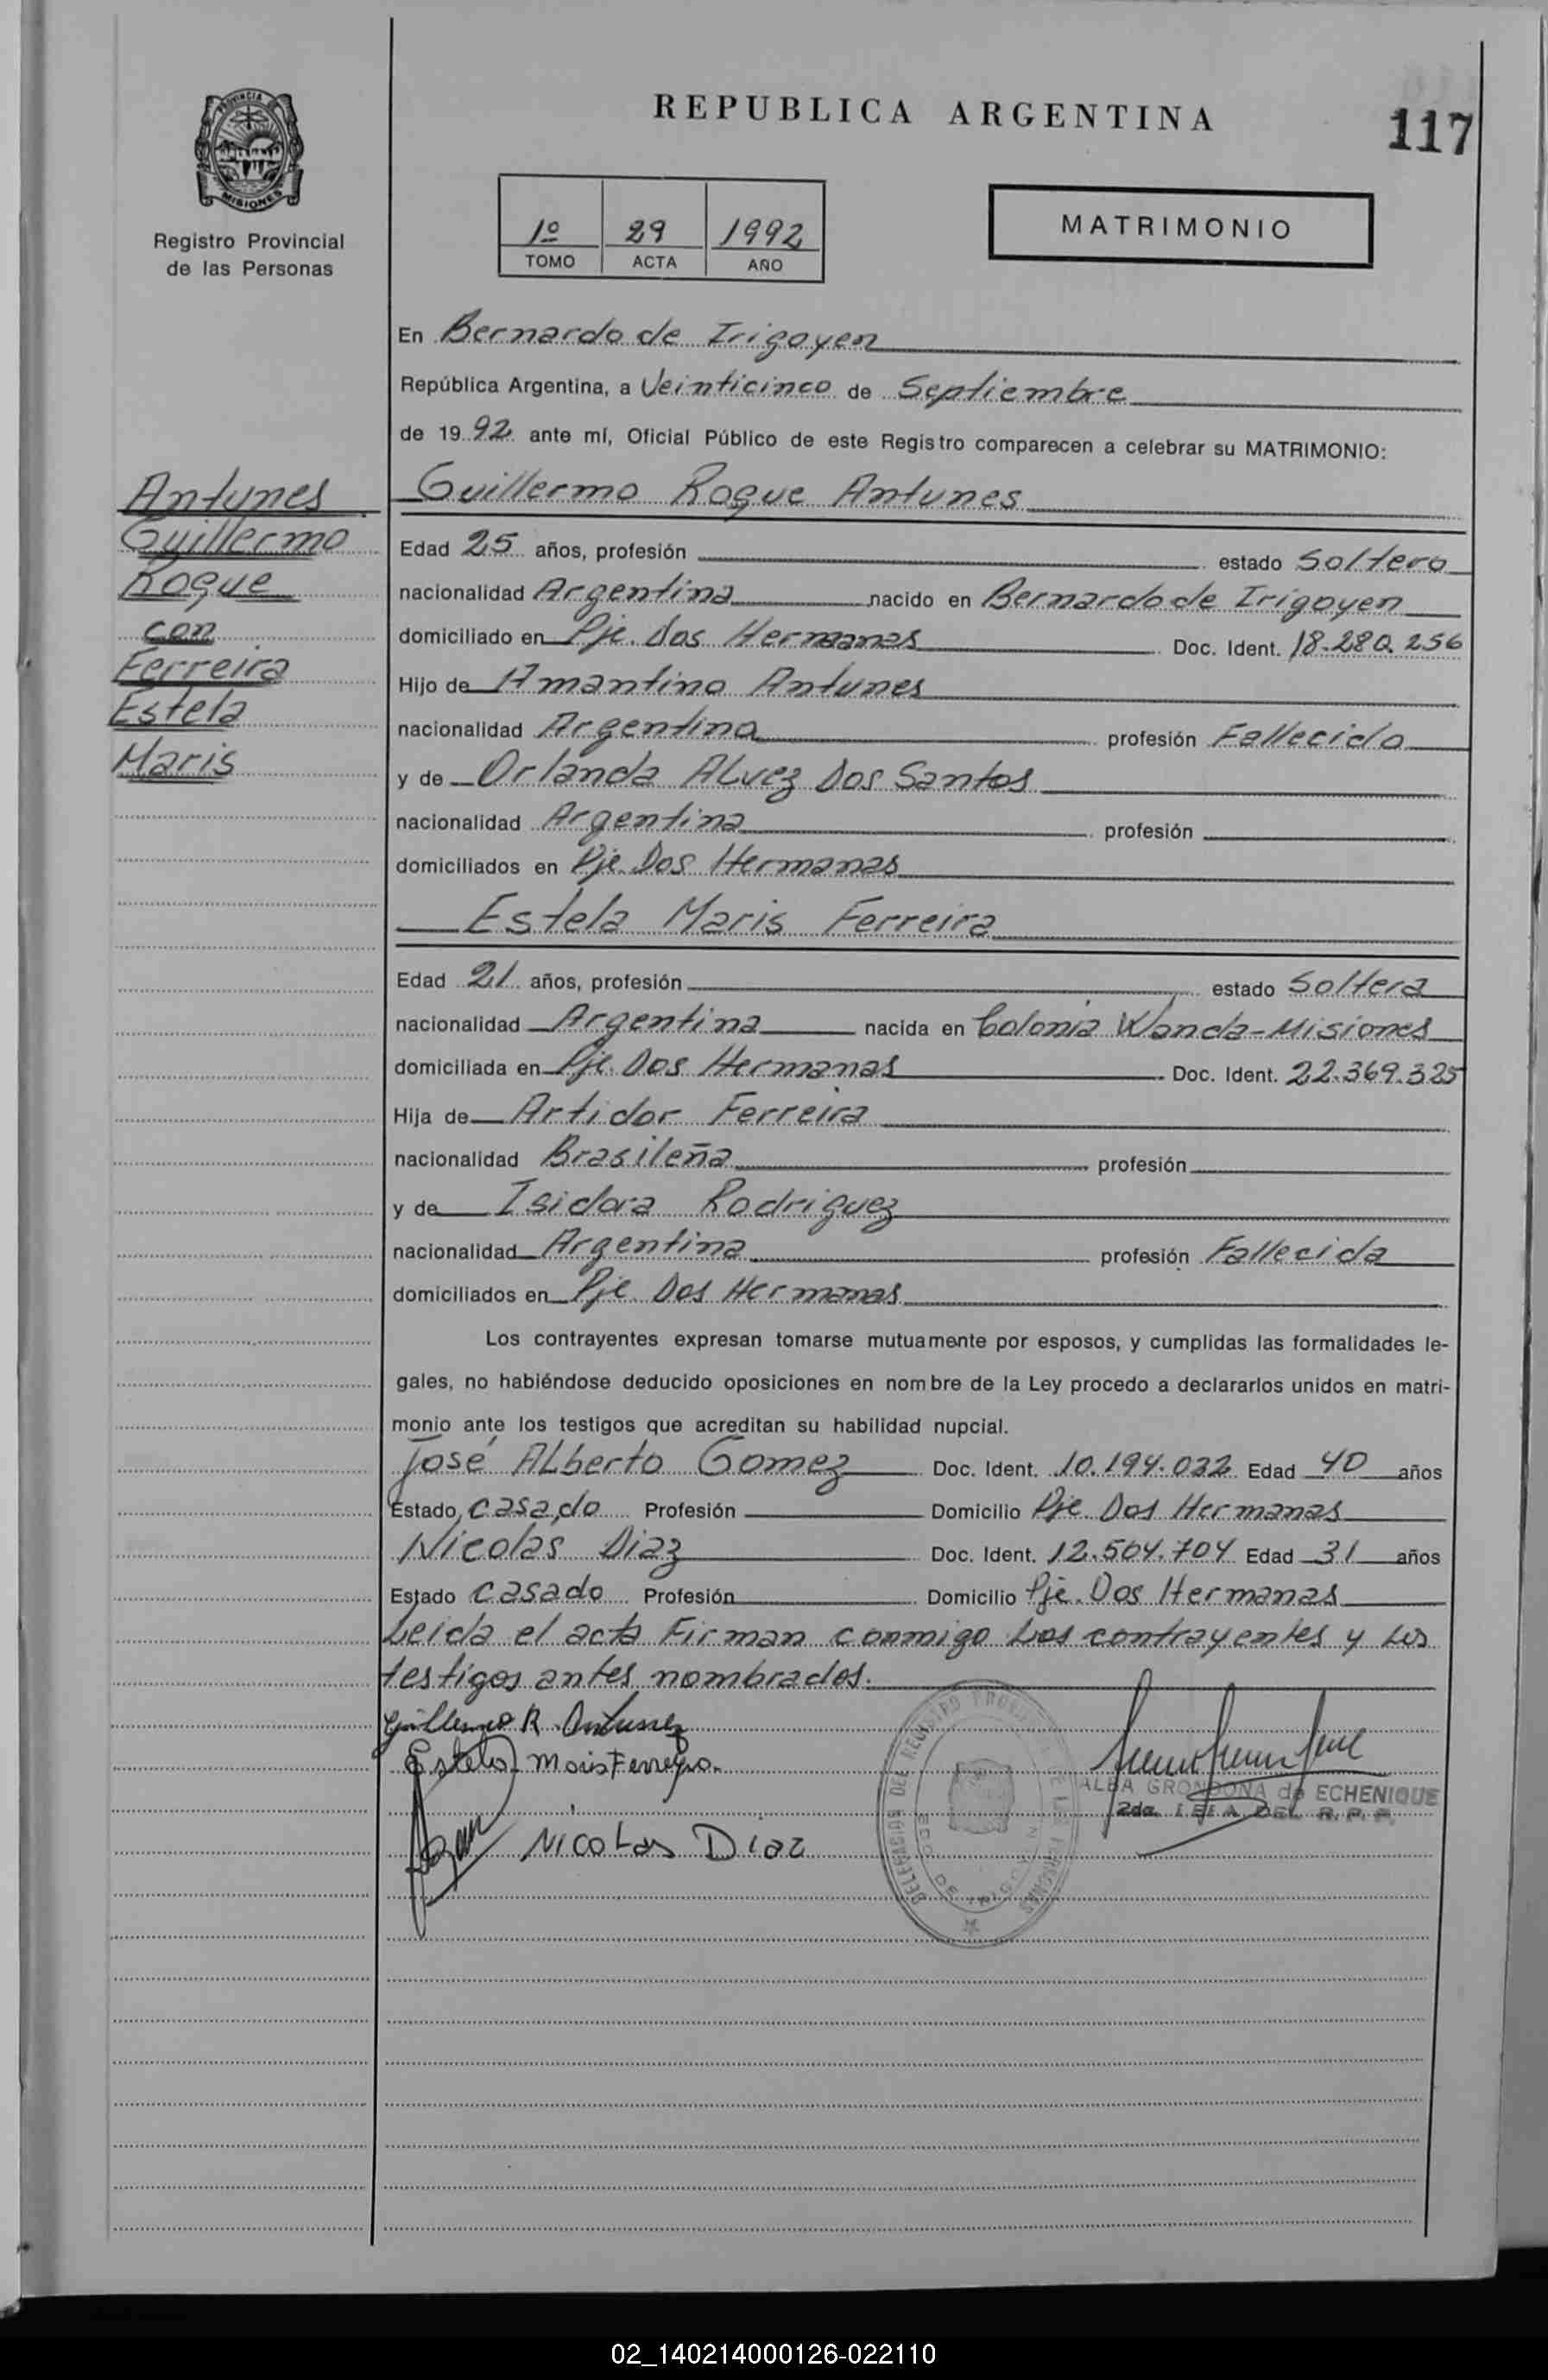 PROVINCIA DE
MISIONES
Registro Provincial
de las Personas
REPUBLICA ARGENTINA
117
1º 29 1992
TOMO ACTA AÑO
MATRIMONIO
En Bernardo de Irigoyen
República Argentina, a Veinticinco de Septiembre
de 1992 ante mí, Oficial Público de este Registro comparecen a celebrar su MATRIMONIO:
Antunes
Guillermo
Roque
con
Ferreira
Estela
Maris
Guillermo Roque Antunes
Edad 25 años, profesión estado Soltero
nacionalidad Argentina nacido en Bernardo de Irigoyen
domiciliado en Pje. Dos Hermanas Doc. Ident. 18.280.256
Hijo de Amantino Antunes
nacionalidad Argentina profesión Fallecido
y de Orlanda ALvez Dos Santos
nacionalidad Argentina profesión
domiciliados en Pje. Dos Hermanas
Estela Maris Ferreira
Edad 21 años, profesión estado Soltera
nacionalidad Argentina nacida en Colonia Wanda-Misiones
domiciliada en Pje. Dos Hermanas Doc. Ident. 22.369.325
Hija de Artidor Ferreira
nacionalidad Brasileña profesión
y de Isidora Rodriguez
nacionalidad Argentina profesión Fallecida
domiciliados en Pje Dos Hermanas
Los contrayentes expresan tomarse mutuamente por esposos, y cumplidas las formalidades le-
gales, no habiéndose deducido oposiciones en nombre de la Ley procedo a declararlos unidos en matri-
monio ante los testigos que acreditan su habilidad nupcial.
José ALberto Gomez Doc. Ident. 10.194.032 Edad 40 años
Estado casado Profesión Domicilio Pje Dos Hermanas
Nicolás Diaz Doc. Ident. 12.504.704 Edad 31 años
Estado casado Profesión Domicilio Pje. Dos Hermanas
Leida el acta Firman conmigo Los contrayentes y Los
testigos antes nombrados.
Guillermo R. Antunez
Estela Maris Ferreyra.
NICOLAS DIAZ
DELEGACION DEL REGISTRO PROVINCIAL DE LAS PERSONAS
BDO. DE IRIGOYEN
ALBA GRONDONA de ECHENIQUE
2da. JEFA DEL R.P.P.
02_140214000126-022110